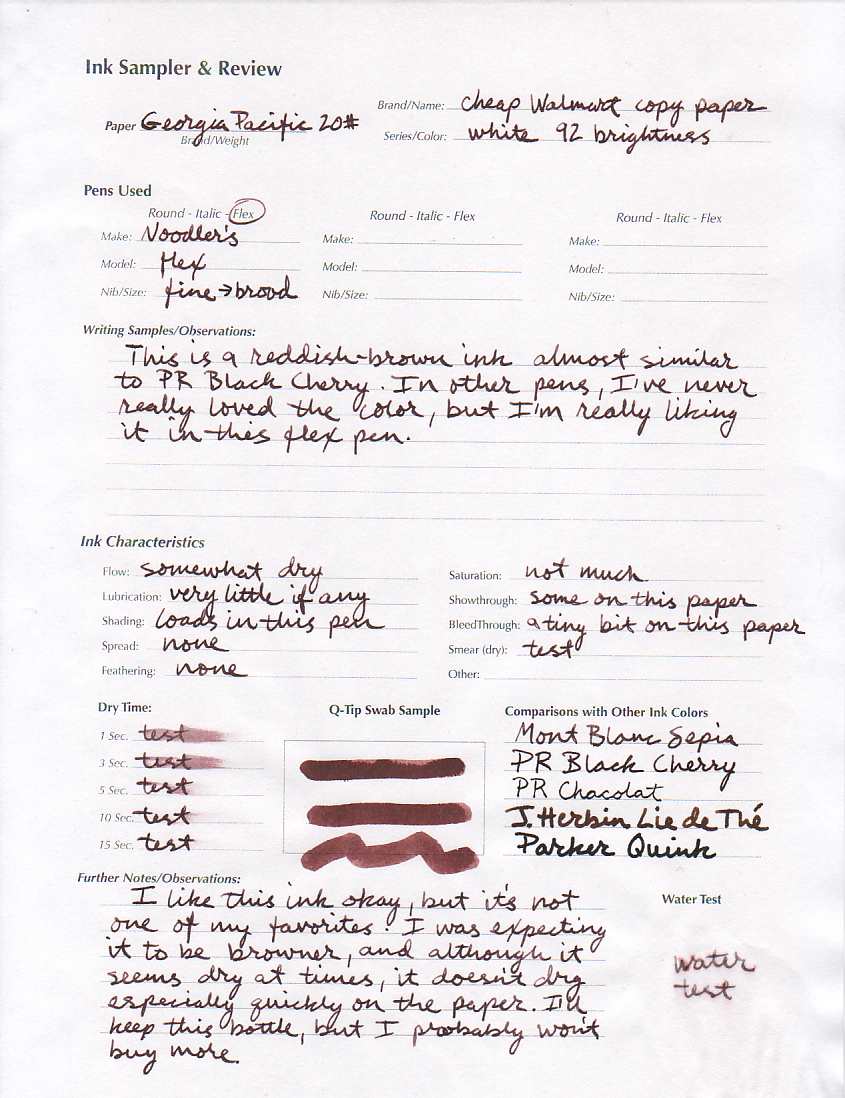 Ink Sampler & Review
Paper Georgia Pacific 20#
Brand/Weight
Brand/Name: cheap Walmart copy paper
Series/Color: white 92 brightness
Pens Used
Round - Italic - Flex
Make: Noodler's
Model: flex
Nib/Size: fine → broad
Round - Italic - Flex
Make:
Model:
Nib/Size:
Round - Italic - Flex
Make:
Model:
Nib/Size:
Writing Samples/Observations:
This is a reddish-brown ink almost similar
to PR Black Cherry. In other pens, I've never
really loved the color, but I'm really liking
it in this flex pen.
Ink Characteristics
Flow: somewhat dry
Lubrication: very little if any
Shading: loads in this pen
Spread: none
Feathering: none
Saturation: not much
Showthrough: some on this paper
BleedThrough: a tiny bit on this paper
Smear (dry): test
Other:
Dry Time:
1 Sec. test
3 Sec. test
5 Sec. test
10 Sec. test
15 Sec. test
Q-Tip Swab Sample
Comparisons with Other Ink Colors
Mont Blanc Sepia
PR Black Cherry
PR Chacolat
J. Herbin Lie de Thé
Parker Quink
Further Notes/Observations:
I like this ink okay, but it's not
one of my favorites. I was expecting
it to be browner, and although it
seems dry at times, it doesn't dry
especially quickly on the paper. I'll
keep this bottle, but I probably won't
buy more.
Water Test
water
test